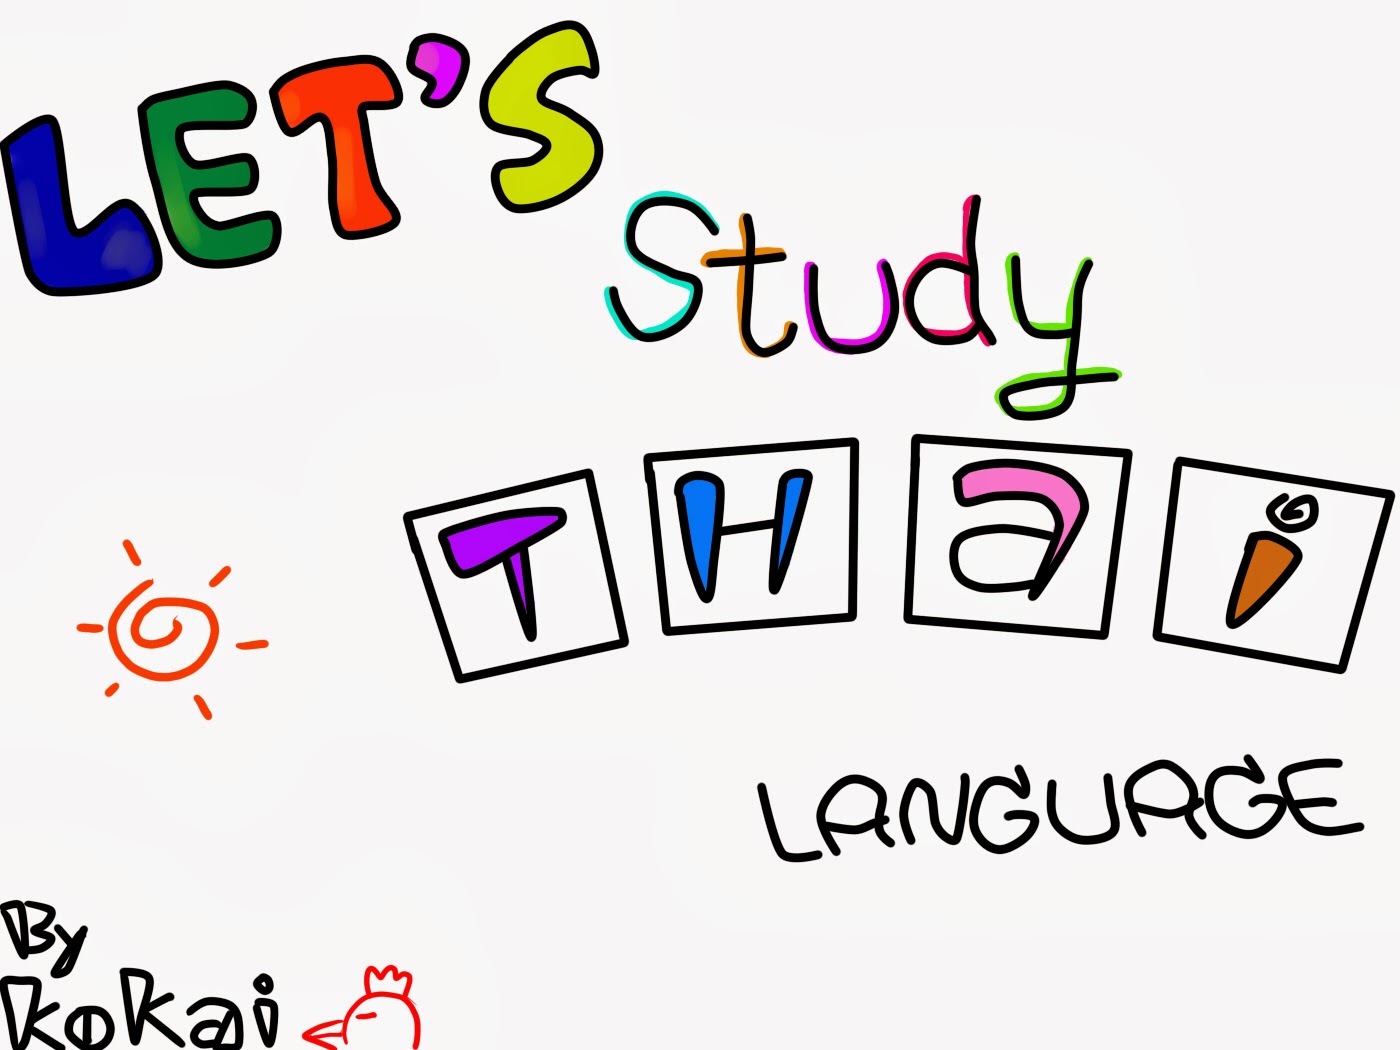 LET'S
Study
THai
LANGUAGE
By
kokai